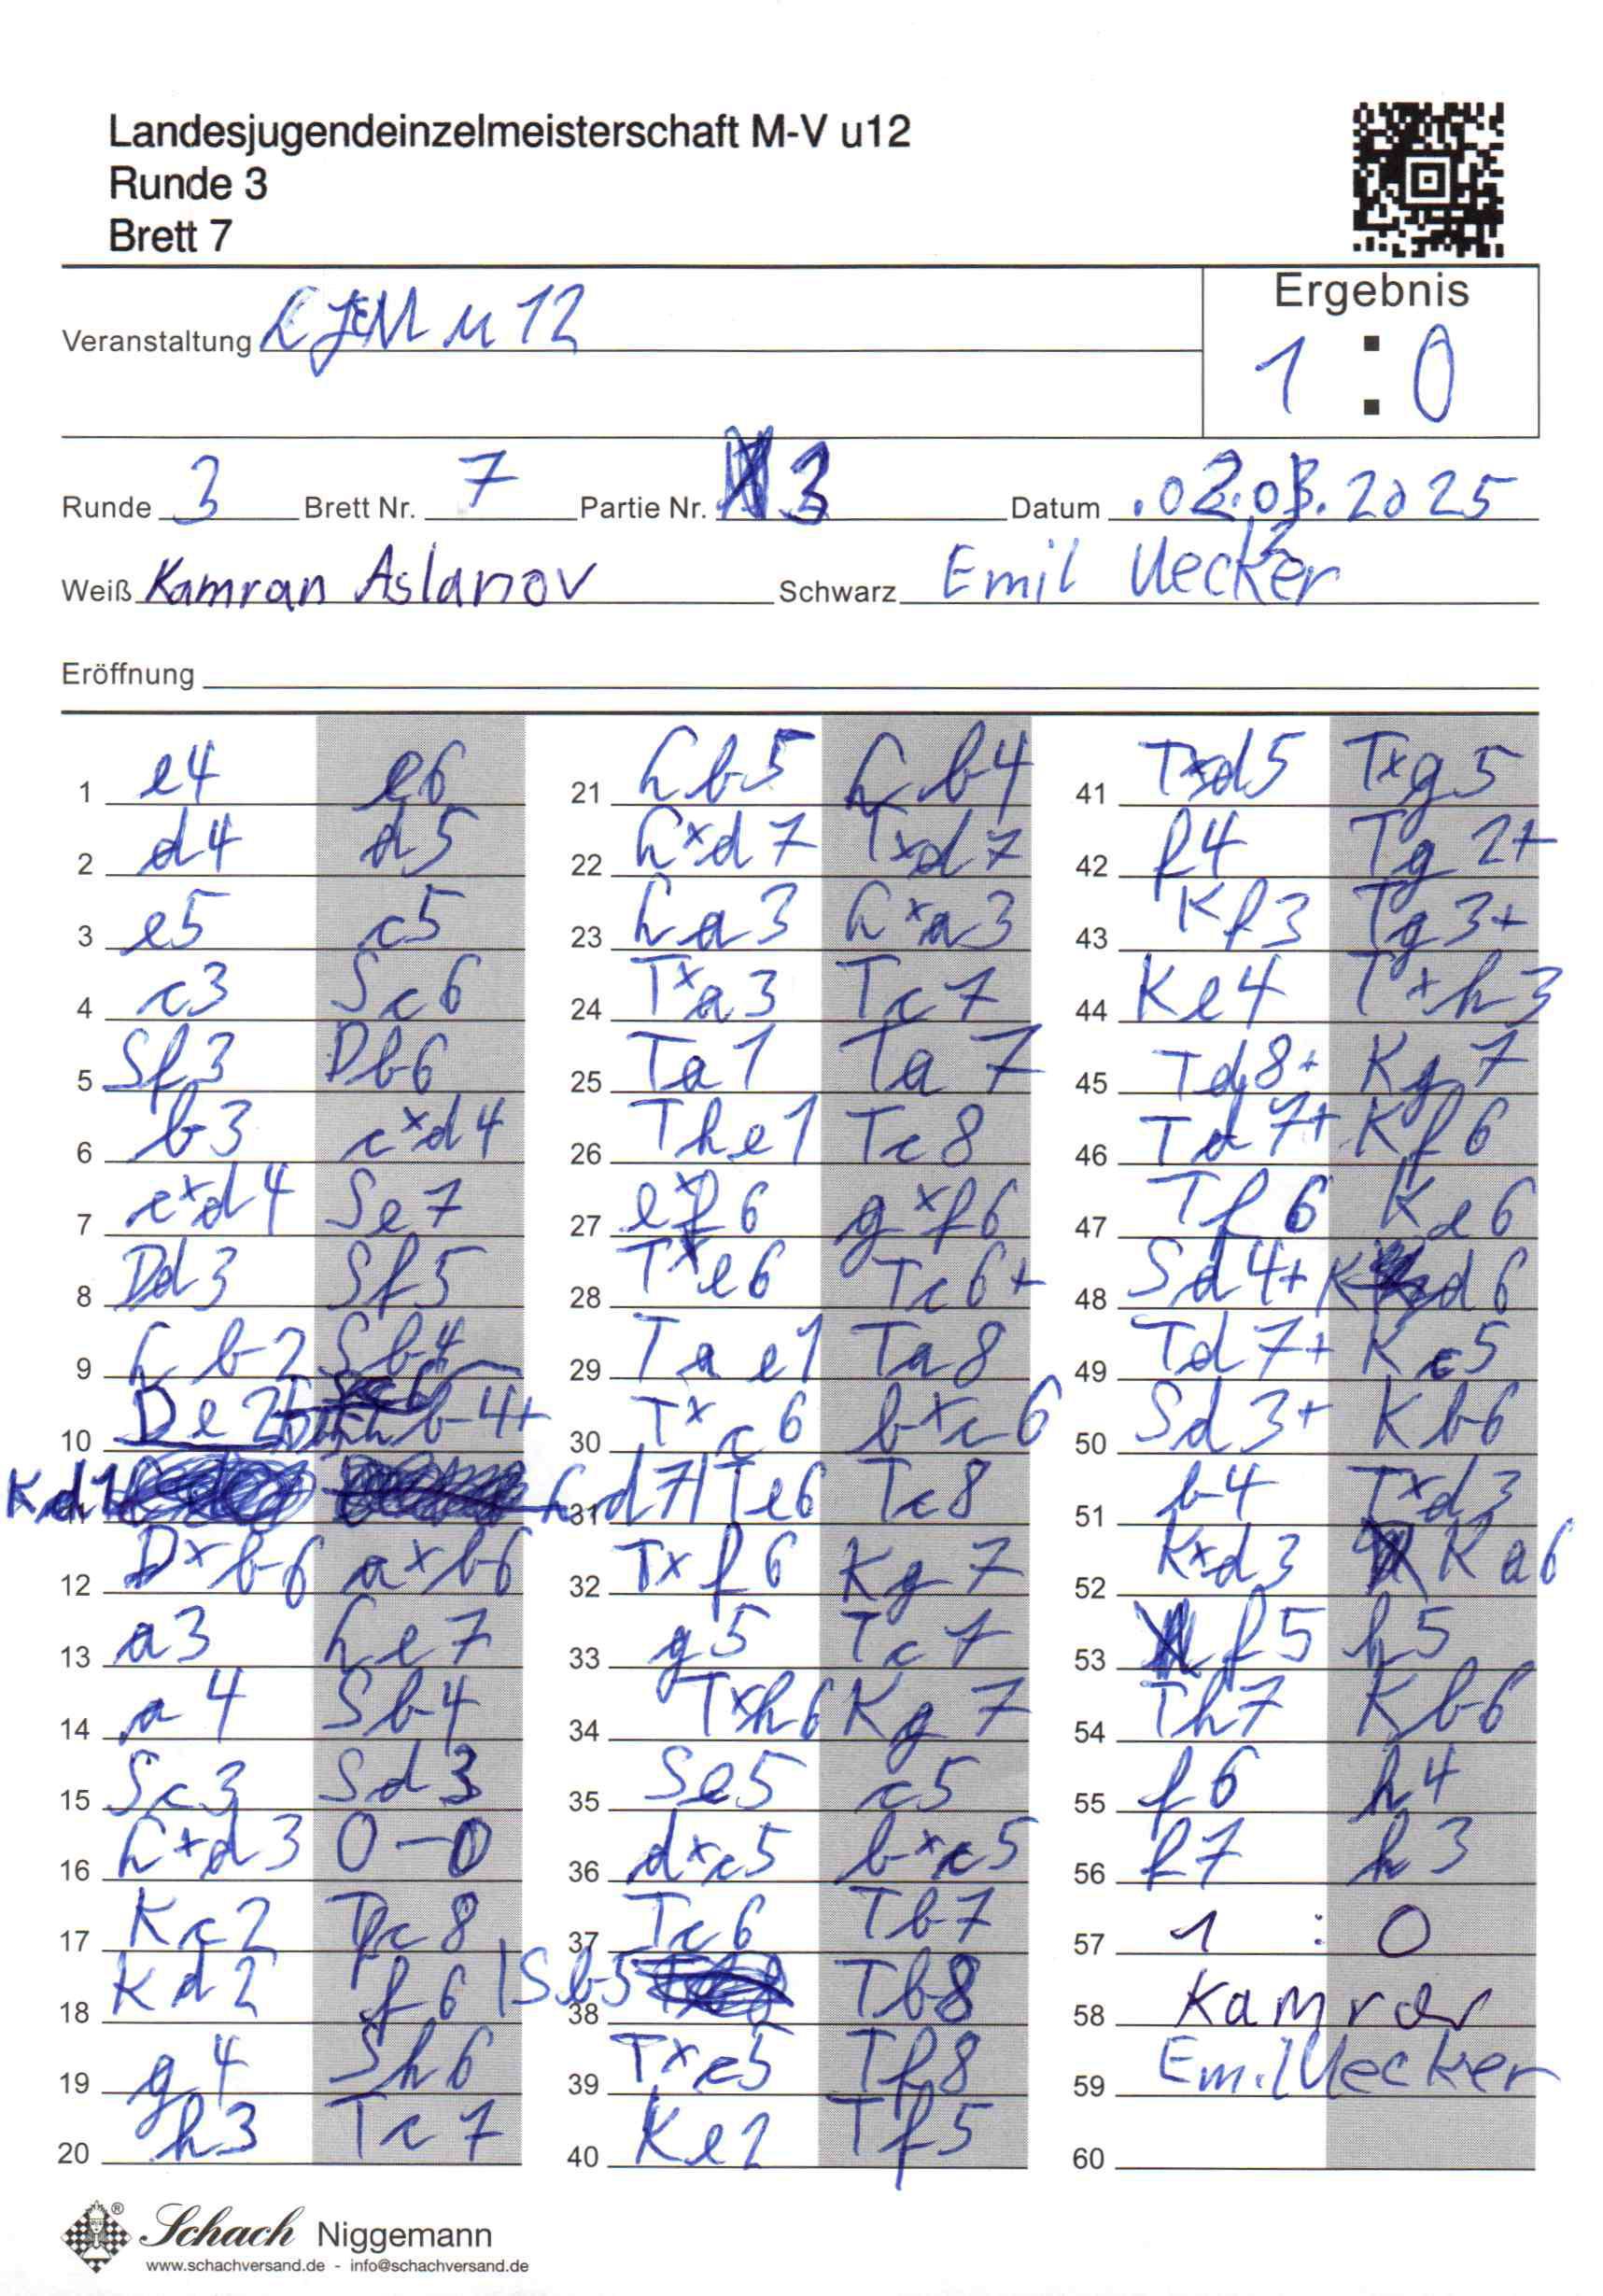 Landesjugendeinzelmeisterschaft M-V u12
Runde 3
Brett 7
Ergebnis
Veranstaltung LJEM u 12
1 : 0
Runde 3 Brett Nr. 7 Partie Nr. 3 Datum .02.03.2025
Weiß Kamran Aslanov Schwarz Emil Uecker
Eröffnung
1 e4 e6
2 d4 d5
3 e5 c5
4 c3 Sc6
5 Sf3 Db6
6 b3 c×d4
7 c×d4 Se7
8 Dd3 Sf5
9 Lb2 Sb4
10 De2 Lb4+
11 Kd1 Ld7
12 D×b6 a×b6
13 a3 Le7
14 a4 Sb4
15 Sc3 Sd3
16 L×d3 0-0
17 Kc2 Tc8
18 Kd2 f6
19 g4 Sh6
20 h3 Tc7
21 Lb5 Lb4
22 L×d7 T×d7
23 La3 L×a3
24 T×a3 Tc7
25 Ta1 Ta7
26 The1 Tc8
27 e×f6 g×f6
28 T×e6 Tc6+
29 Tae1 Ta8
30 T×c6 b×c6
31 Te6 Tc8
32 T×f6 Kg7
33 g5 Tc7
34 T×h6 Kg7
35 Se5 c5
36 d×c5 b×c5
37 Tc6 Tb7
38 Sb5 Tb8
39 T×c5 Tf8
40 Ke2 Tf5
41 T×d5 T×g5
42 f4 Tg2+
43 Kf3 Tg3+
44 Ke4 T×h3
45 Td8+ Kg7
46 Td7+ Kf6
47 Tf6 Ke6
48 Sd4+ Kd6
49 Td7+ Kc5
50 Sd3+ Kb6
51 b4 T×d3
52 K×d3 Ka6
53 f5 h5
54 Th7 Kb6
55 f6 h4
56 f7 h3
57 1 : 0
58 Kamran
59 Emil Uecker
60
Schach Niggemann
www.schachversand.de - info@schachversand.de